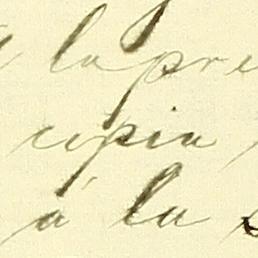 la pre
copia
á la